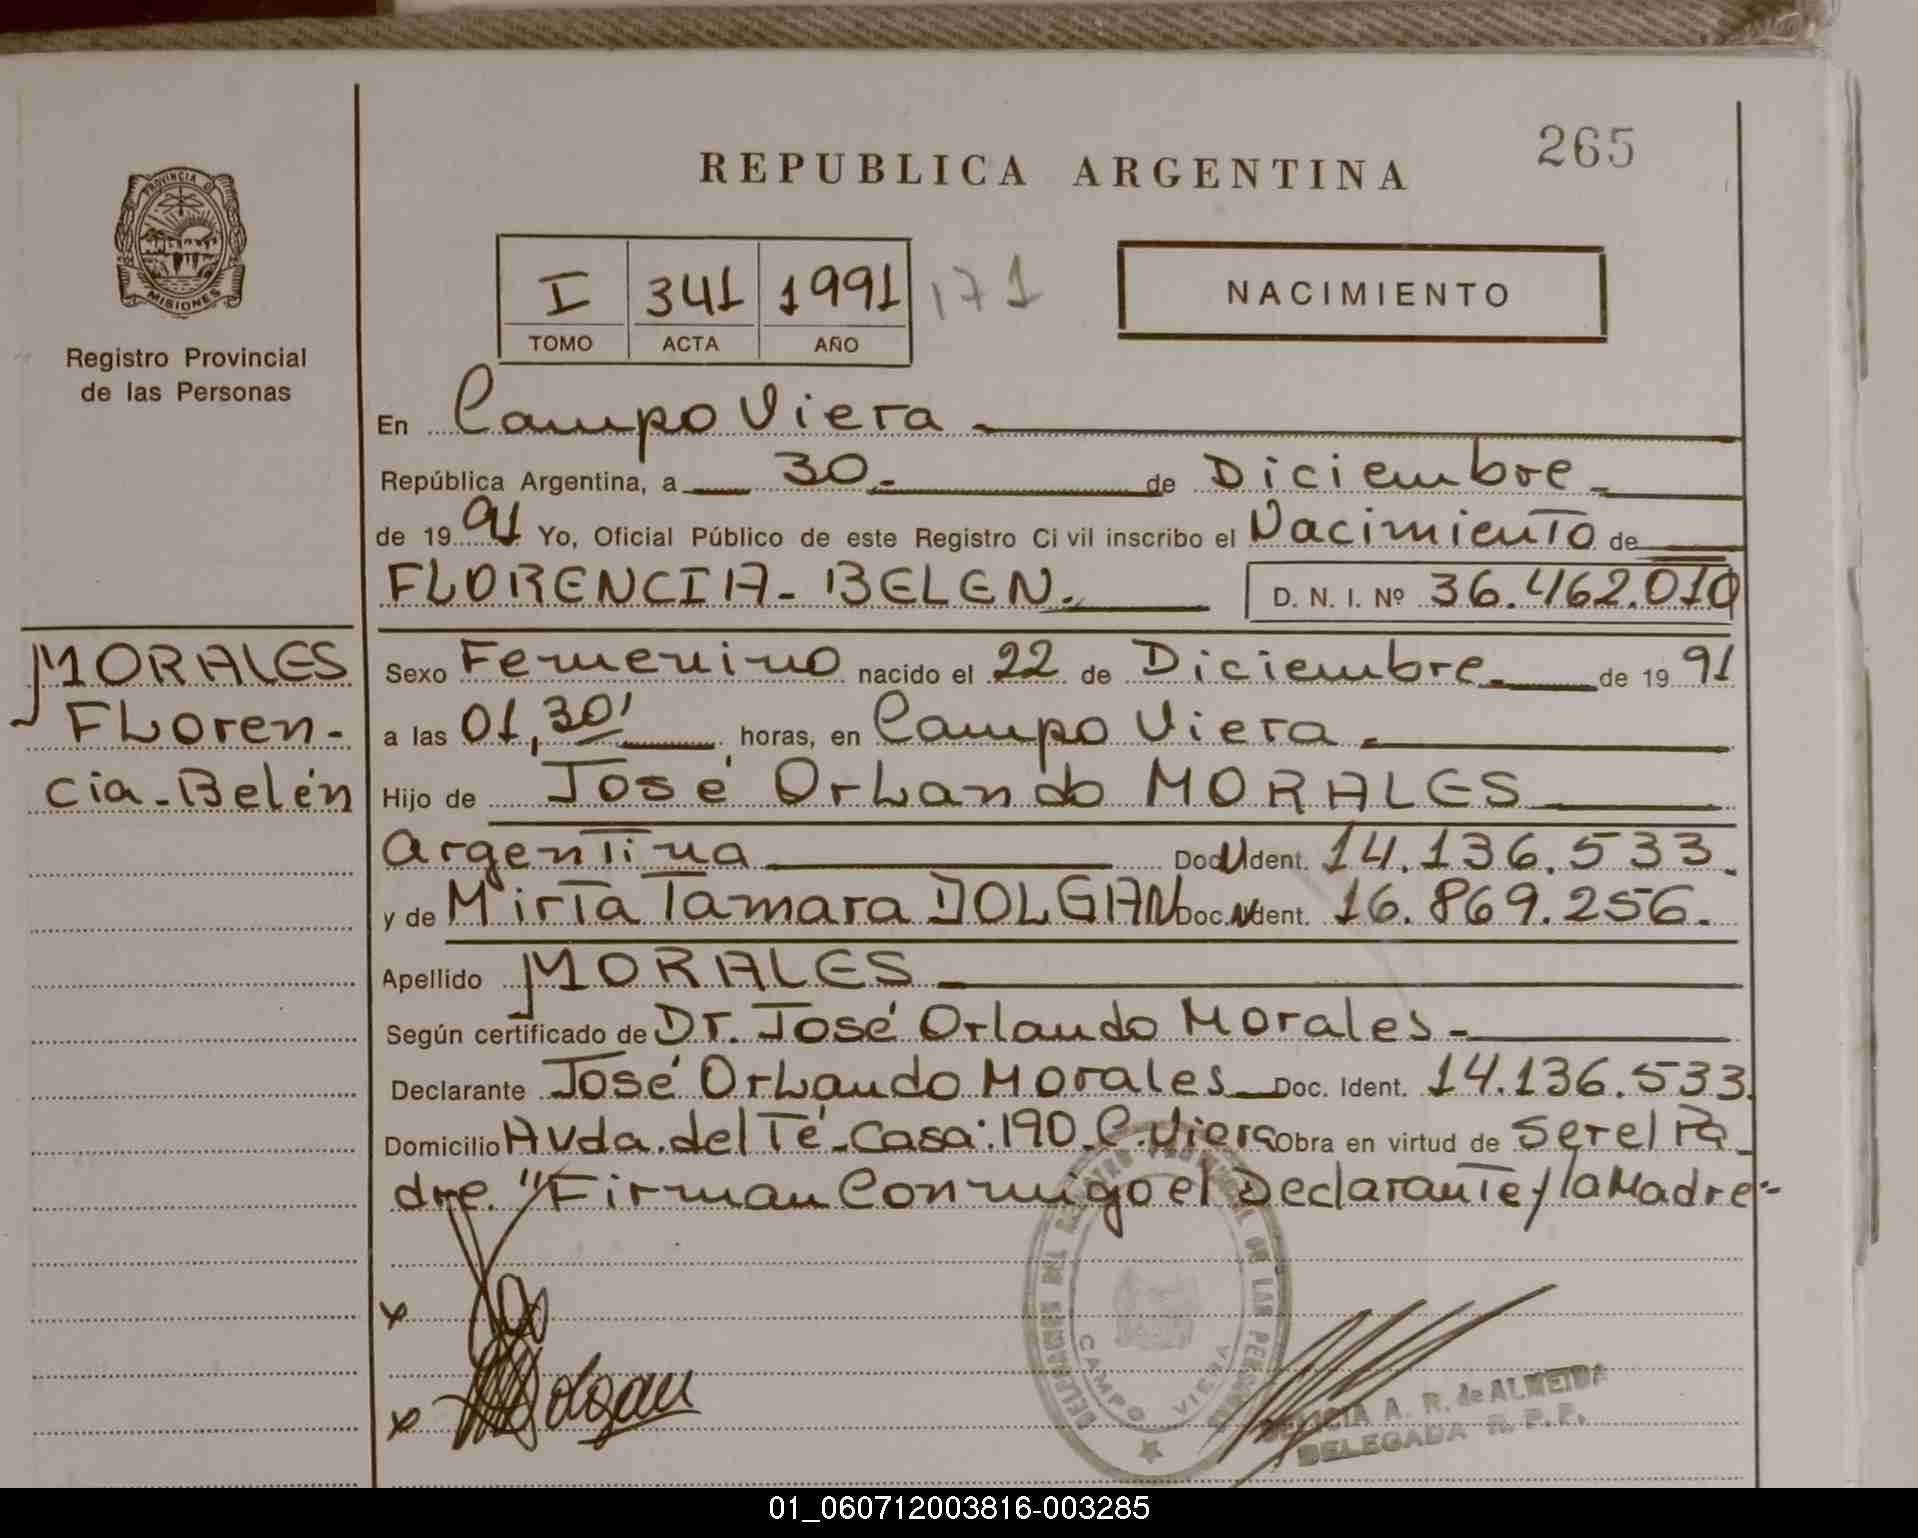 265
REPUBLICA ARGENTINA
PROVINCIA D
MISIONES
Registro Provincial
de las Personas
I 341 1991 171
TOMO ACTA AÑO
NACIMIENTO
En Campo Viera
República Argentina, a 30 de Diciembre
de 1991 Yo, Oficial Público de este Registro Civil inscribo el Nacimiento de
FLORENCIA - BELEN. D. N. I. Nº 36.462.010
MORALES
Floren-
cia-Belén
Sexo Femenino nacido el 22 de Diciembre de 1991
a las 01,30' horas, en Campo Viera
Hijo de José Orlando MORALES
Argentina Doc. Ident. 14.136.533.
y de Mirta Tamara DOLGAN Doc. Ident. 16.869.256.
Apellido MORALES
Según certificado de Dr. José Orlando Morales-
Declarante José Orlando Morales Doc. Ident. 14.136.533
Domicilio Avda. del Té-Casa:190-C.Viera Obra en virtud de Ser el Pa-
dre. "Firman Conmigo el Declarante y la Madre"-
x
x Dolgan
DELEGACION DEL REGISTRO PROVINCIAL DE LAS PERSONAS
CAMPO VIERA
A. R. de ALMEIDA
DELEGADA R. P. P.
01_060712003816-003285